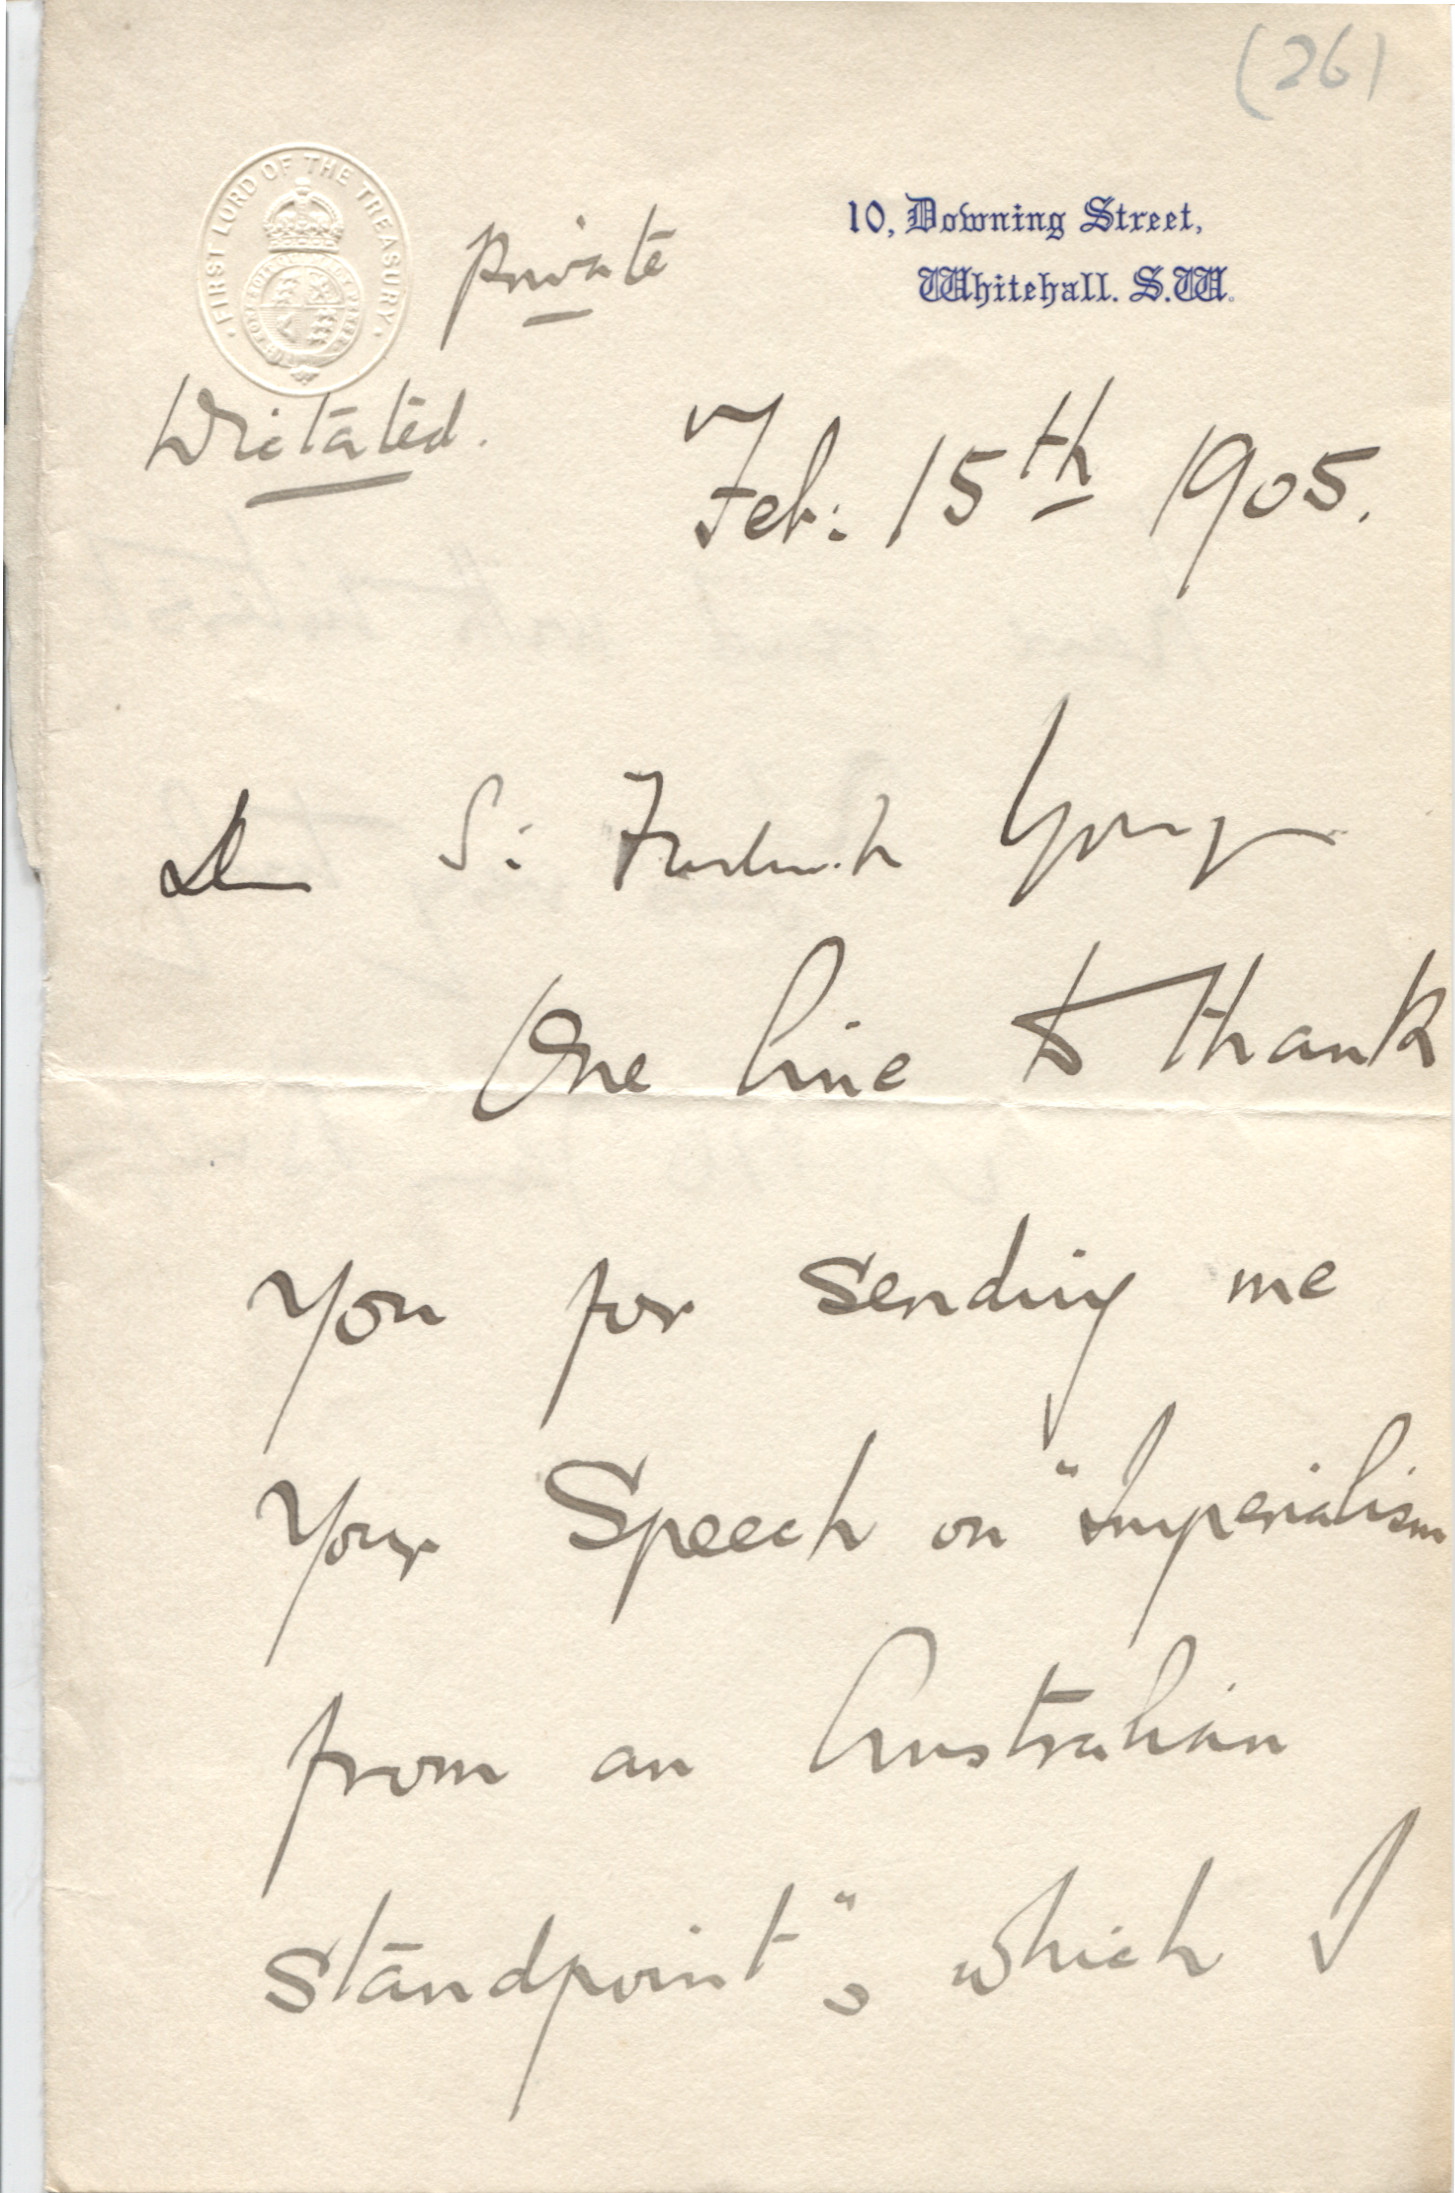 (26)
FIRST LORD OF THE TREASURY
Private
10, Downing Street,
Whitehall. S.W.
Dictated.
Feb: 15th 1905.
Dear Sir Frederick Young
One line to thank
you for sending me
your Speech on "Imperialism
from an Australian
standpoint", which I